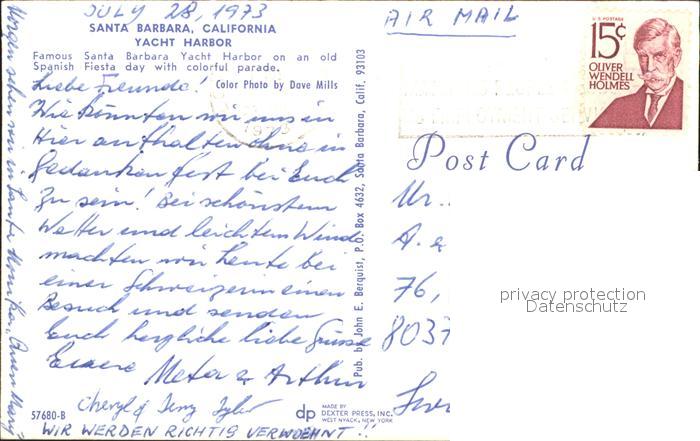 JULY 28, 1973
SANTA BARBARA, CALIFORNIA
YACHT HARBOR
Famous Santa Barbara Yacht Harbor on an old
Spanish Fiesta day with colorful parade.
Color Photo by Dave Mills
Liebe Freunde!
Wie könnten wir uns in
hier aufhalten ohne in
Gedanken fest bei Euch
zu sein! Bei schönstem
Wetter und leichtem Wind
machten wir heute bei
einer Schweizerin einen
Besuch und senden
Euch herzliche liebe Grüsse
Euere Meta & Arthur
Cheryl & Terry Tyler
WIR WERDEN RICHTIG VERWOEHNT!!
57680-B
Morgen sehen wir in Santa Monica, Queen Mary
Pub. by John E. Berquist, P.O. Box 4632, Santa Barbara, Calif. 93103
dp MADE BY
DEXTER PRESS, INC.
WEST NYACK, NEW YORK
AIR MAIL
U.S. POSTAGE
15¢
OLIVER
WENDELL
HOLMES
Post Card
A. &
76,
8037
privacy protection
Datenschutz